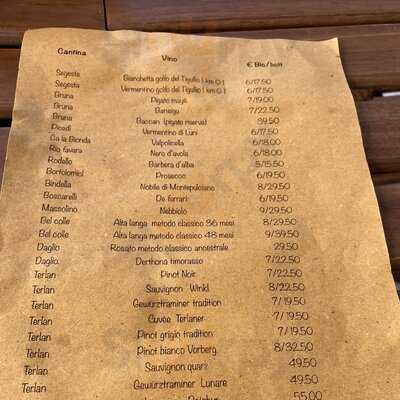 Cantina Vino € Bic/bott
Segesta Bianchetta golfo del Tigullio ( km 0 ) 6/17.50
Segesta Vermentino golfo del Tigullio ( km 0 ) 6/17.50
Bruna Pigato majé 7/19.00
Bruna Bansigu 7/22.50
Bruna Baccan (pigato riserva) 39.50
Picedi Vermentino di Luni 6/17.50
Ca la Bionda Valpolicella 6/18.00
Rio favara Nero d'avola 6/18.00
Rodello Barbera d'alba 5/15.50
Bortolomiol Prosecco 6/19.50
Bindella Nobile di Montepulciano 8/29.50
Boscarelli De ferrari 6/19.50
Massolino Nebbiolo 9/29.50
Bel colle Alta langa metodo classico 36 mesi 8/29.50
Bel colle Alta langa metodo classico 48 mesi 9/39.50
Daglio Rosato metodo classico ancestrale 29.50
Daglio Derthona timorasso 7/22.50
Terlan Pinot Noir 7/22.50
Terlan Sauvignon Winkl 8/22.50
Terlan Gewürztraminer tradition 7/19.50
Terlan Cuvée Terlaner 7/19.50
Terlan Pinot grigio tradition 7/19.50
Terlan Pinot bianco Vorberg 8/32.50
Terlan Sauvignon quarz 49.50
Terlan Gewürztraminer Lunare 49.50
55.00